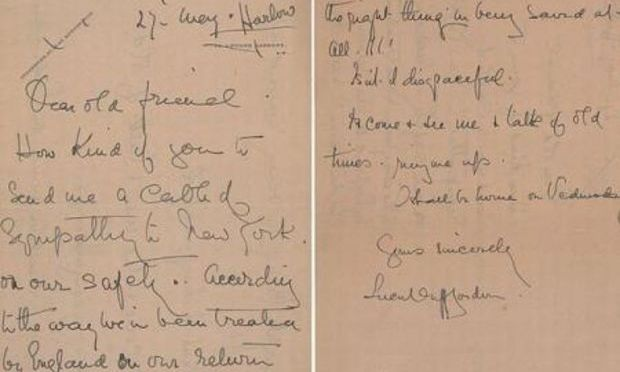 27- May. Harlow
Dear old friend.
How Kind of you to
Send me a Cable of
Sympathy to New York.
on our safety.. According
to the way we've been treated
by England on our return
right thing in being saved at
all. !!!
Isn't it disgraceful.
come & see me & talk of old
times. ring me up.
I shall be home on Wednesday
Yours sincerely
Lucile Duff Gordon.